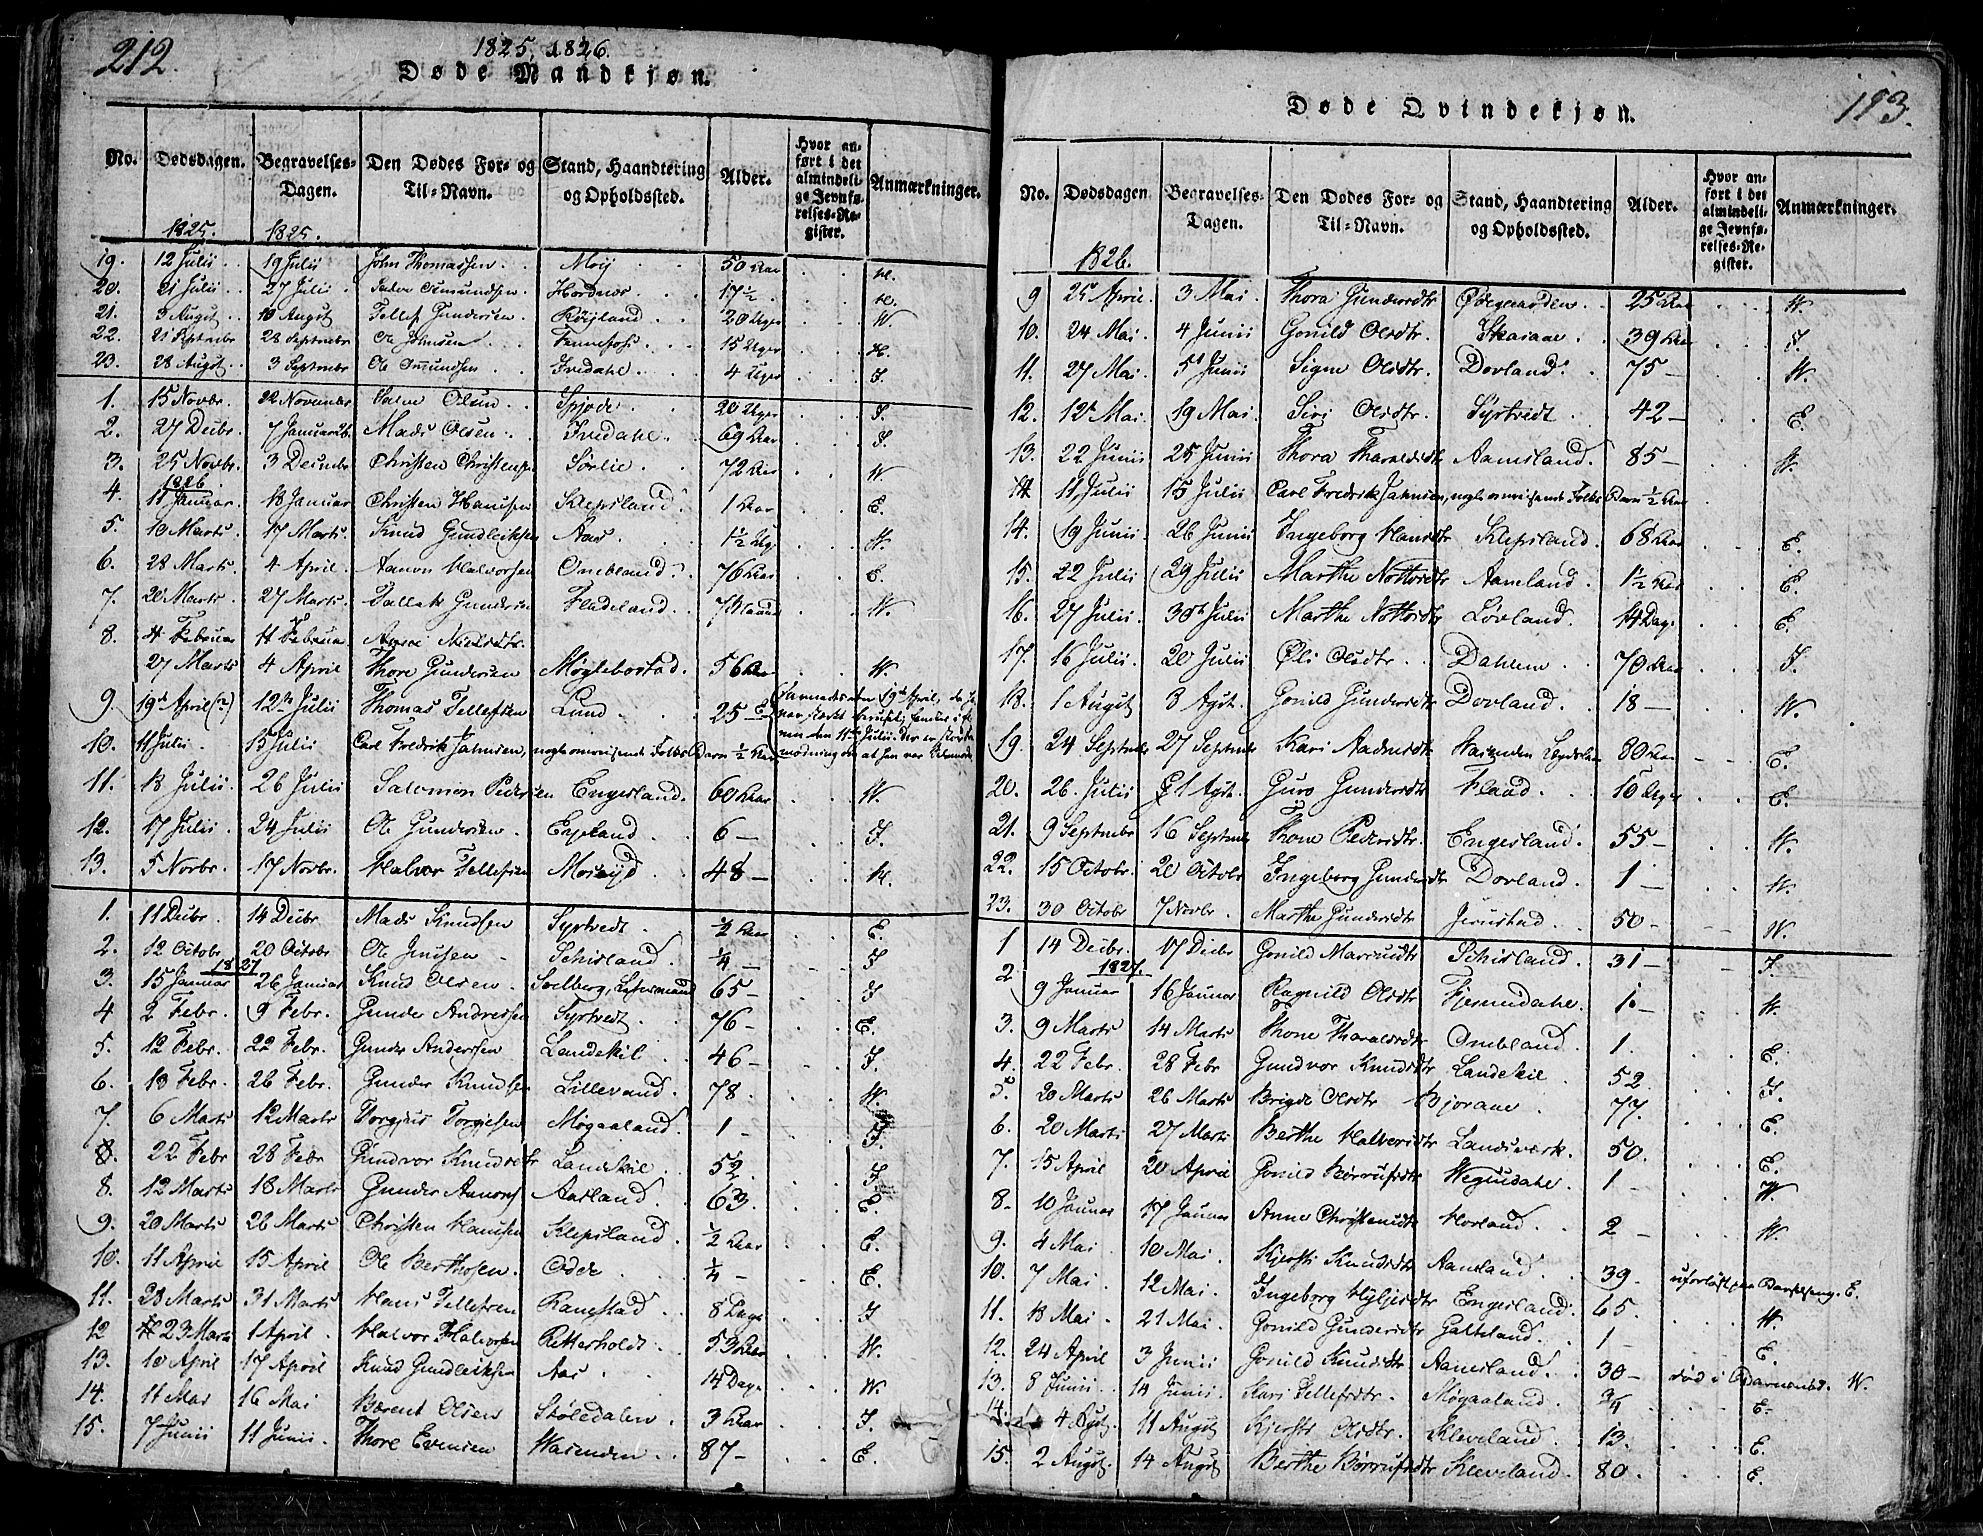 212.
1825, 1826.
Døde Mandkjøn.
No. Dødsdagen. Begravelses-Dagen. Den Dødes For- og Til-Navn. Stand, Haandtering og Opholdssted. Alder. Hvor anført i det almindelige Jevnførelses-Register. Anmærkninger.
1825. 1825.
19. 12 Julii 19 Julii John Thomassen Moij 50 Aar H.
20. 21 Julii 27 Julii Omundsen Hordnæs 17½ H.
21. 3 Augst 10 Augst Tellef Gundersen Røijland 20 Uger W.
22. 21 Septembr 28 Septembr Ole Johnsen Fennefoss 15 Uger H.
23. 28 Augst 3 Septembr Ole Omundsen Ivedahl 4 Uger I.
1. 15 Novbr. 22 November Olsen Spjode 20 Uger I.
2. 27 Decbr. 7 Januar 26 Mads Olsen Ivedahl 69 Aar I.
3. 25 Novbr. 3 Decembr Christen Christensen Sørlie 72 Aar W.
1826
4. 11 Januar 18 Januar Christen Hansen Klepsland 1 Aar E.
5. 10 Marts 17 Marts Knud Gundleiksen Aas 1½ Ug. H.
6. 28 Marts. 4 April. Aanon Halvorsen Ombland 76 Aar E.
7. 20 Marts 27 Marts Tallak Gundersen Fladeland W.
8. 4 Februar 11 Februar Nielsdtr.
27 Marts 4 April Thore Gundersen Møglebostad. 56 Aar W.
9. 19de April (?) 12te Julii Thomas Tellefsen Lund 25
10. 11 Julii 15 Julii Carl Fredrik Jahnsen, nogle omreisende Folks Barn ½ Aar
11. 18 Julii 26 Julii Salomon Pedersen Engesland. 60 Aar W.
12. 17 Julii 24 Julii Ole Gundersen Engeland 6 — I.
13. 5 Novbr. 17 Novbr. Halvor Tellefsen 48 — H.
1. 11 Decbr. 14 Decbr. Mads Knudsen Syrtvedt ½ Aar E.
2. 12 Octobr 20 Octobr Ole Jensen Schisland ¼ — I
1827
3. 15 Januar 26 Januar Knud Olsen Solberg, 65 — I
4 2 Febr. 9 Febr. Gunder Andersen Syrtvedt 76 — E.
5. 12 Febr. 22 Febr. Gunder Anderssen Landeskil 46 — I.
6. 19 Febr. 26 Febr. Gunder Knudsen Lillesand 78. W.
7. 6 Marts 12 Marts Torgjus Torgjesen Møgaaland. 1 - I.
8. 22 Febr 28 Febr Gundvor Knudsdtr Landskil 52. I
8. 12 Marts 18 Marts Gunder Aanons Aasland 63. E.
9. 20 Marts 26 Marts Christen Hansen Klepsland ½ Aar E.
10. 11 April 15 April Ole Berthosen Odde ¼ - E.
11. 23 Marts 31 Marts Hans Tellefsen Ranestad 8 Dage I
12 23 Marts 1 April Halvor Halvorsen Retterholdt 53 Aar W.
13. 10 April 17 April Knud Gundleiksen Aas 14 Dage W.
14. 11 Mai 16 Mai Berent Olsen Støledalen 3 Aar I
15. 7 Junii 11 Junii Thore Evensen Wasenden 87 - E.
113.
Døde Qvindekjøn.
No. Dødsdagen Begravelses-Dagen. Den Dødes For- og Til-Navn. Stand, Haandtering og Opholdssted. Alder. Hvor anført i det almindelige Jevnførelses-Register. Anmærkninger.
1826.
9 25 April. 3 Mai Thora Gundersdtr Ødegaarden 25 Aar W.
10. 24 Mai 4 Junii Gonild Olsdtr. Skaiaae 39 Aar I.
11. 27 Mai 5t Junii Signe Olsdtr. Dovland. 75 — W.
12. 12t Mai 19 Mai Siri Olsdtr. Syrtvedt 42 — E.
13. 22 Junii 25 Junii Thora Tharaldsdtr Aamsland. 85 — W.
14 11 Julii 15 Julii Carl Fredrik Jahnsen, nogle omreisende Folks Barn ½ Aar
14. 19 Junii 26 Junii Ingeborg Hansdtr Klepsland. 68 Aar E.
15. 22 Julii 29 Julii Marthe Nottosdtr Aamland 1½ Aar E.
16. 27 Julii 30te Julii Marthe Nottosdtr Løvland. 14 Dage E.
17. 16 Julii. 20 Julii Øli Olsdtr. Dahlen 70 Aar I.
18. 1 Augst 8 Agst. Gonild Gundersdtr Dovland. 18 — W.
19. 24 Septembr 27 Septembr Kari Aadnesdtr Wasenden 80 Aar E.
20. 26. Julii 1 Agst. Guro Gundersdtr Flaad 10 Uger E.
21. 9 Septembr 16 Septembr Thone Pedersdtr. Engesland. 55 — W.
22. 15 Octobr. 20 Octobr Ingeborg Gundersdtr Dovland. 1 — W.
23. 30 Octobr 7 Novbr. Marthe Gundersdtr Jerustad 50 — W.
1 14 Decbr. 17 Decbr Gonild Schisland. 31 — I.
1827.
2 9 Januar 16 Januar Ragnild Olsdtr Fjermedahl. 1. — W.
3. 9 Marts 14 Marts Thone Tharaldsdtr Ombland. 1. E.
4. 22 Febr. 28 Febr Gundvor Knudsdtr Landeskil 52. I.
5. 20 Marts 26 Marts Brigde Olsdtr Bjoraae 77. E.
6. 20 Marts 27 Marts Berthe Halvorsdtr Landsverk. 50. E.
7. 15 April 20 April Gonild Børrufsdtr Wegusdahl. 1 — W
8. 10 Januar 17 Januar Anne Christensdtr Hovland. 2 — W.
9. 4 Mai 10 Mai. Kjersti Knudsdtr Aamland 39. uforløst paa Barselseng. E.
10. 7 Mai 12 Mai. Ingeborg Engesland. 65. W.
11. 18 Mai 21 Mai Gonild Gundersdtr Galteland. 1 — E.
12. 24 April 3 Junii Gonild Knudsdtr Aamesland. 30 — død i Barnsnød. W.
13. 8 Junii 14 Junii Kari Tellefsdtr. Møgaaland ¾ E.
14. 4 Agst. 11 Augst Kjersti Olsdtr. Kleveland. 13. E.
15. 2 Augst. 14 Augst Berthe Børrufsdtr Kleveland. 80. E.